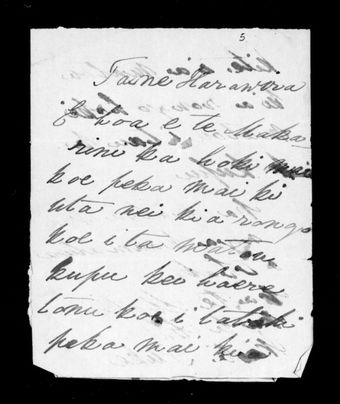 5
Taine Harawira
E hoa e te Maka
rini ka hoki mai
koe peka mai ki
uta nei kia rongo
koe i ta matou
kupu kei haere
tonu koe i tatahi
peka mai kia